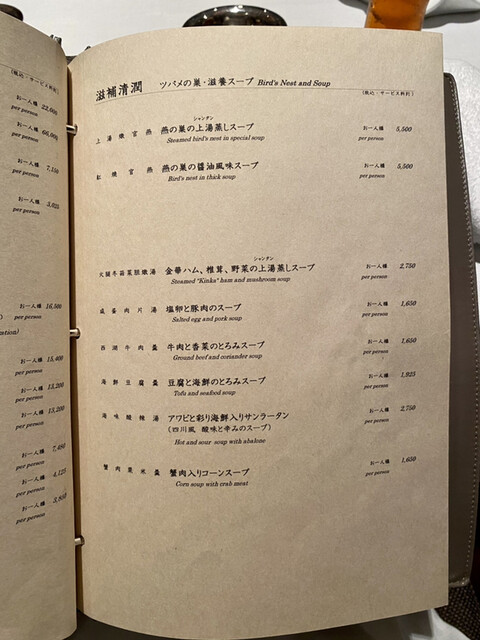 (税込・サービス料別)
お一人様 22,000
per person
お一人様 66,000
per person
お一人様 7,150
per person
お一人様 5,025
per person
お一人様 16,500
per person
お一人様 15,400
per person
お一人様 13,200
per person
お一人様 13,200
per person
お一人様 7,480
per person
お一人様 4,125
per person
お一人様
per person
滋補清潤 ツバメの巣・滋養スープ Bird's Nest and Soup
(税込・サービス料別)
シャンタン
上湯燉官燕 燕の巣の上湯蒸しスープ お一人様 5,500
Steamed bird's nest in special soup per person
紅焼官燕 燕の巣の醤油風味スープ お一人様 5,500
Bird's nest in thick soup per person
シャンタン
火腿冬菇菜胆燉湯 金華ハム、椎茸、野菜の上湯蒸しスープ お一人様 2,750
Steamed "Kinka" ham and mushroom soup per person
咸蛋肉片湯 塩卵と豚肉のスープ お一人様 1,650
Salted egg and pork soup per person
西湖牛肉羹 牛肉と香菜のとろみスープ お一人様 1,650
Ground beef and coriander soup per person
海鮮豆腐羹 豆腐と海鮮のとろみスープ お一人様 1,925
Tofu and seafood soup per person
海味酸辣湯 アワビと彩り海鮮入りサンラータン お一人様 2,750
(四川風 酸味と辛みのスープ) per person
Hot and sour soup with abalone
蟹肉粟米羹 蟹肉入りコーンスープ お一人様 1,650
Corn soup with crab meat per person